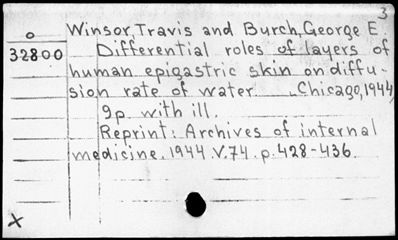 3
Winsor, Travis and Burch, George E
o
32800
Differential roles of layers of
human epigastric skin on diffu-
sion rate of water Chicago, 1944
9p. with ill.
Reprint: Archives of internal
medicine. 1944. V. 74. p. 428-436.
X